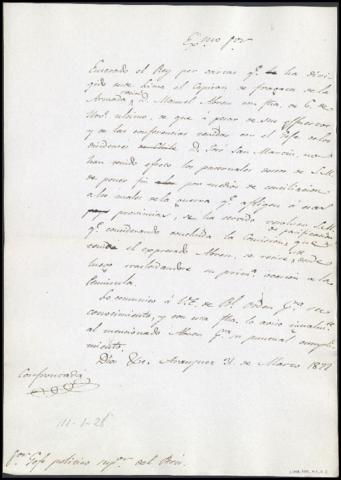 Exmo Sor
Enterado el Rey por cartas qe. le ha diri-
gido desde Lima el Capitan de fragata de la
Armada nacional D. Manuel Abreu en fha. de 6. de
Novre. ultimo, de que á pesar de sus esfuerzos
y de las conferencias tenidas con el Gefe de los
disidentes D. José San Martin, no
han tenido efecto los paternales deseos de S.M.
de poner fin por medios de conciliacion
á los males de la guerra qe. afligen á esas
provincias, se ha servido resolver S.M.
qe. considerando concluida la Comision de pacificacion que
el expresado Abreu, se retire desde
luego trasladandose en primera ocasion á la
Peninsula.
Lo comunico á V.E. de Rl. orden pa. su co-
nocimiento, y con esta fha. lo aviso igualmte.
al mencionado Abreu pa. su puntual cumpli-
miento.
Dios &c. Aranjuez 31 de Marzo 1822
Confrontada
111-1-25
Sor. Gefe politico supor. del Perú.